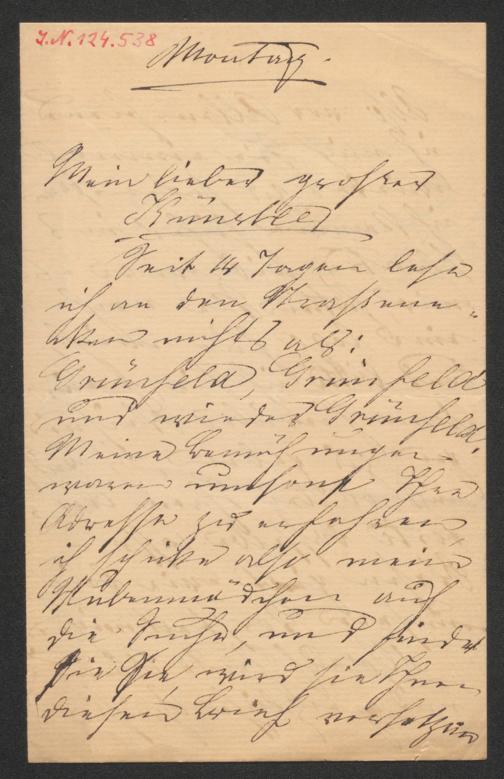 J.N. 124.538
Montag.
Mein lieber großer
Künstler
Seit 14 Tagen lese
ich an den Straßene=
cken nichts als:
Grünfeld, Grünfeld
und wieder Grünfeld.
Meine Bemühungen
waren umsonst Ihre
Adresse zu erfahren
ich schicke also mein
Stubenmädchen auf
die Suche, und findet
Sie Sie, wird sie Ihnen
diesen Brief